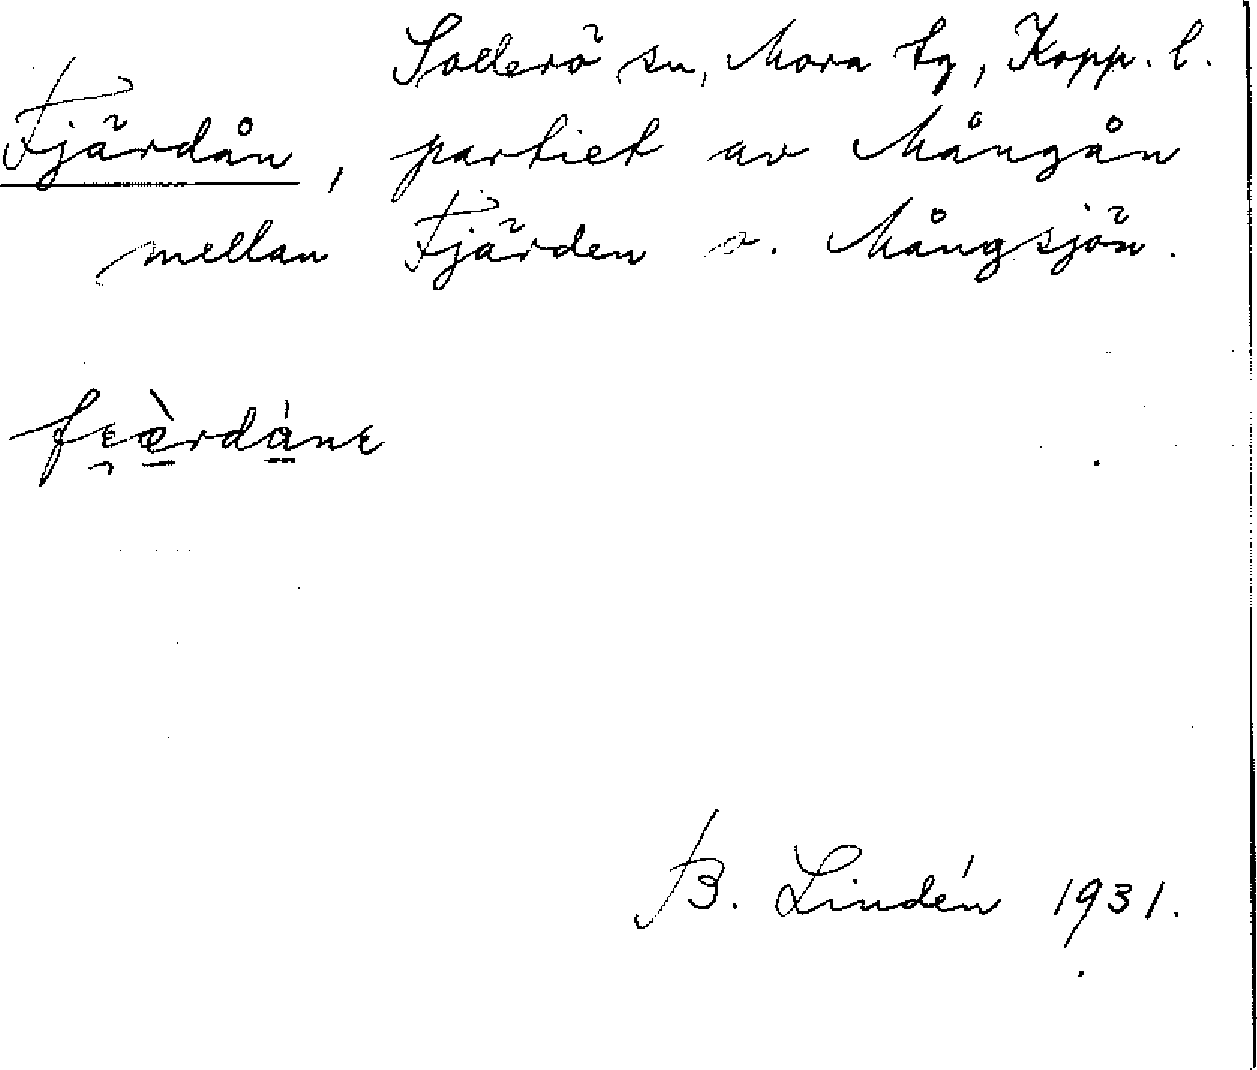 Sollerö sn, Mora tg, Kopp. l.
Fjärdån, partiet av Mångån
mellan Fjärden o. Mångsjön.
B. Lindén 1931.